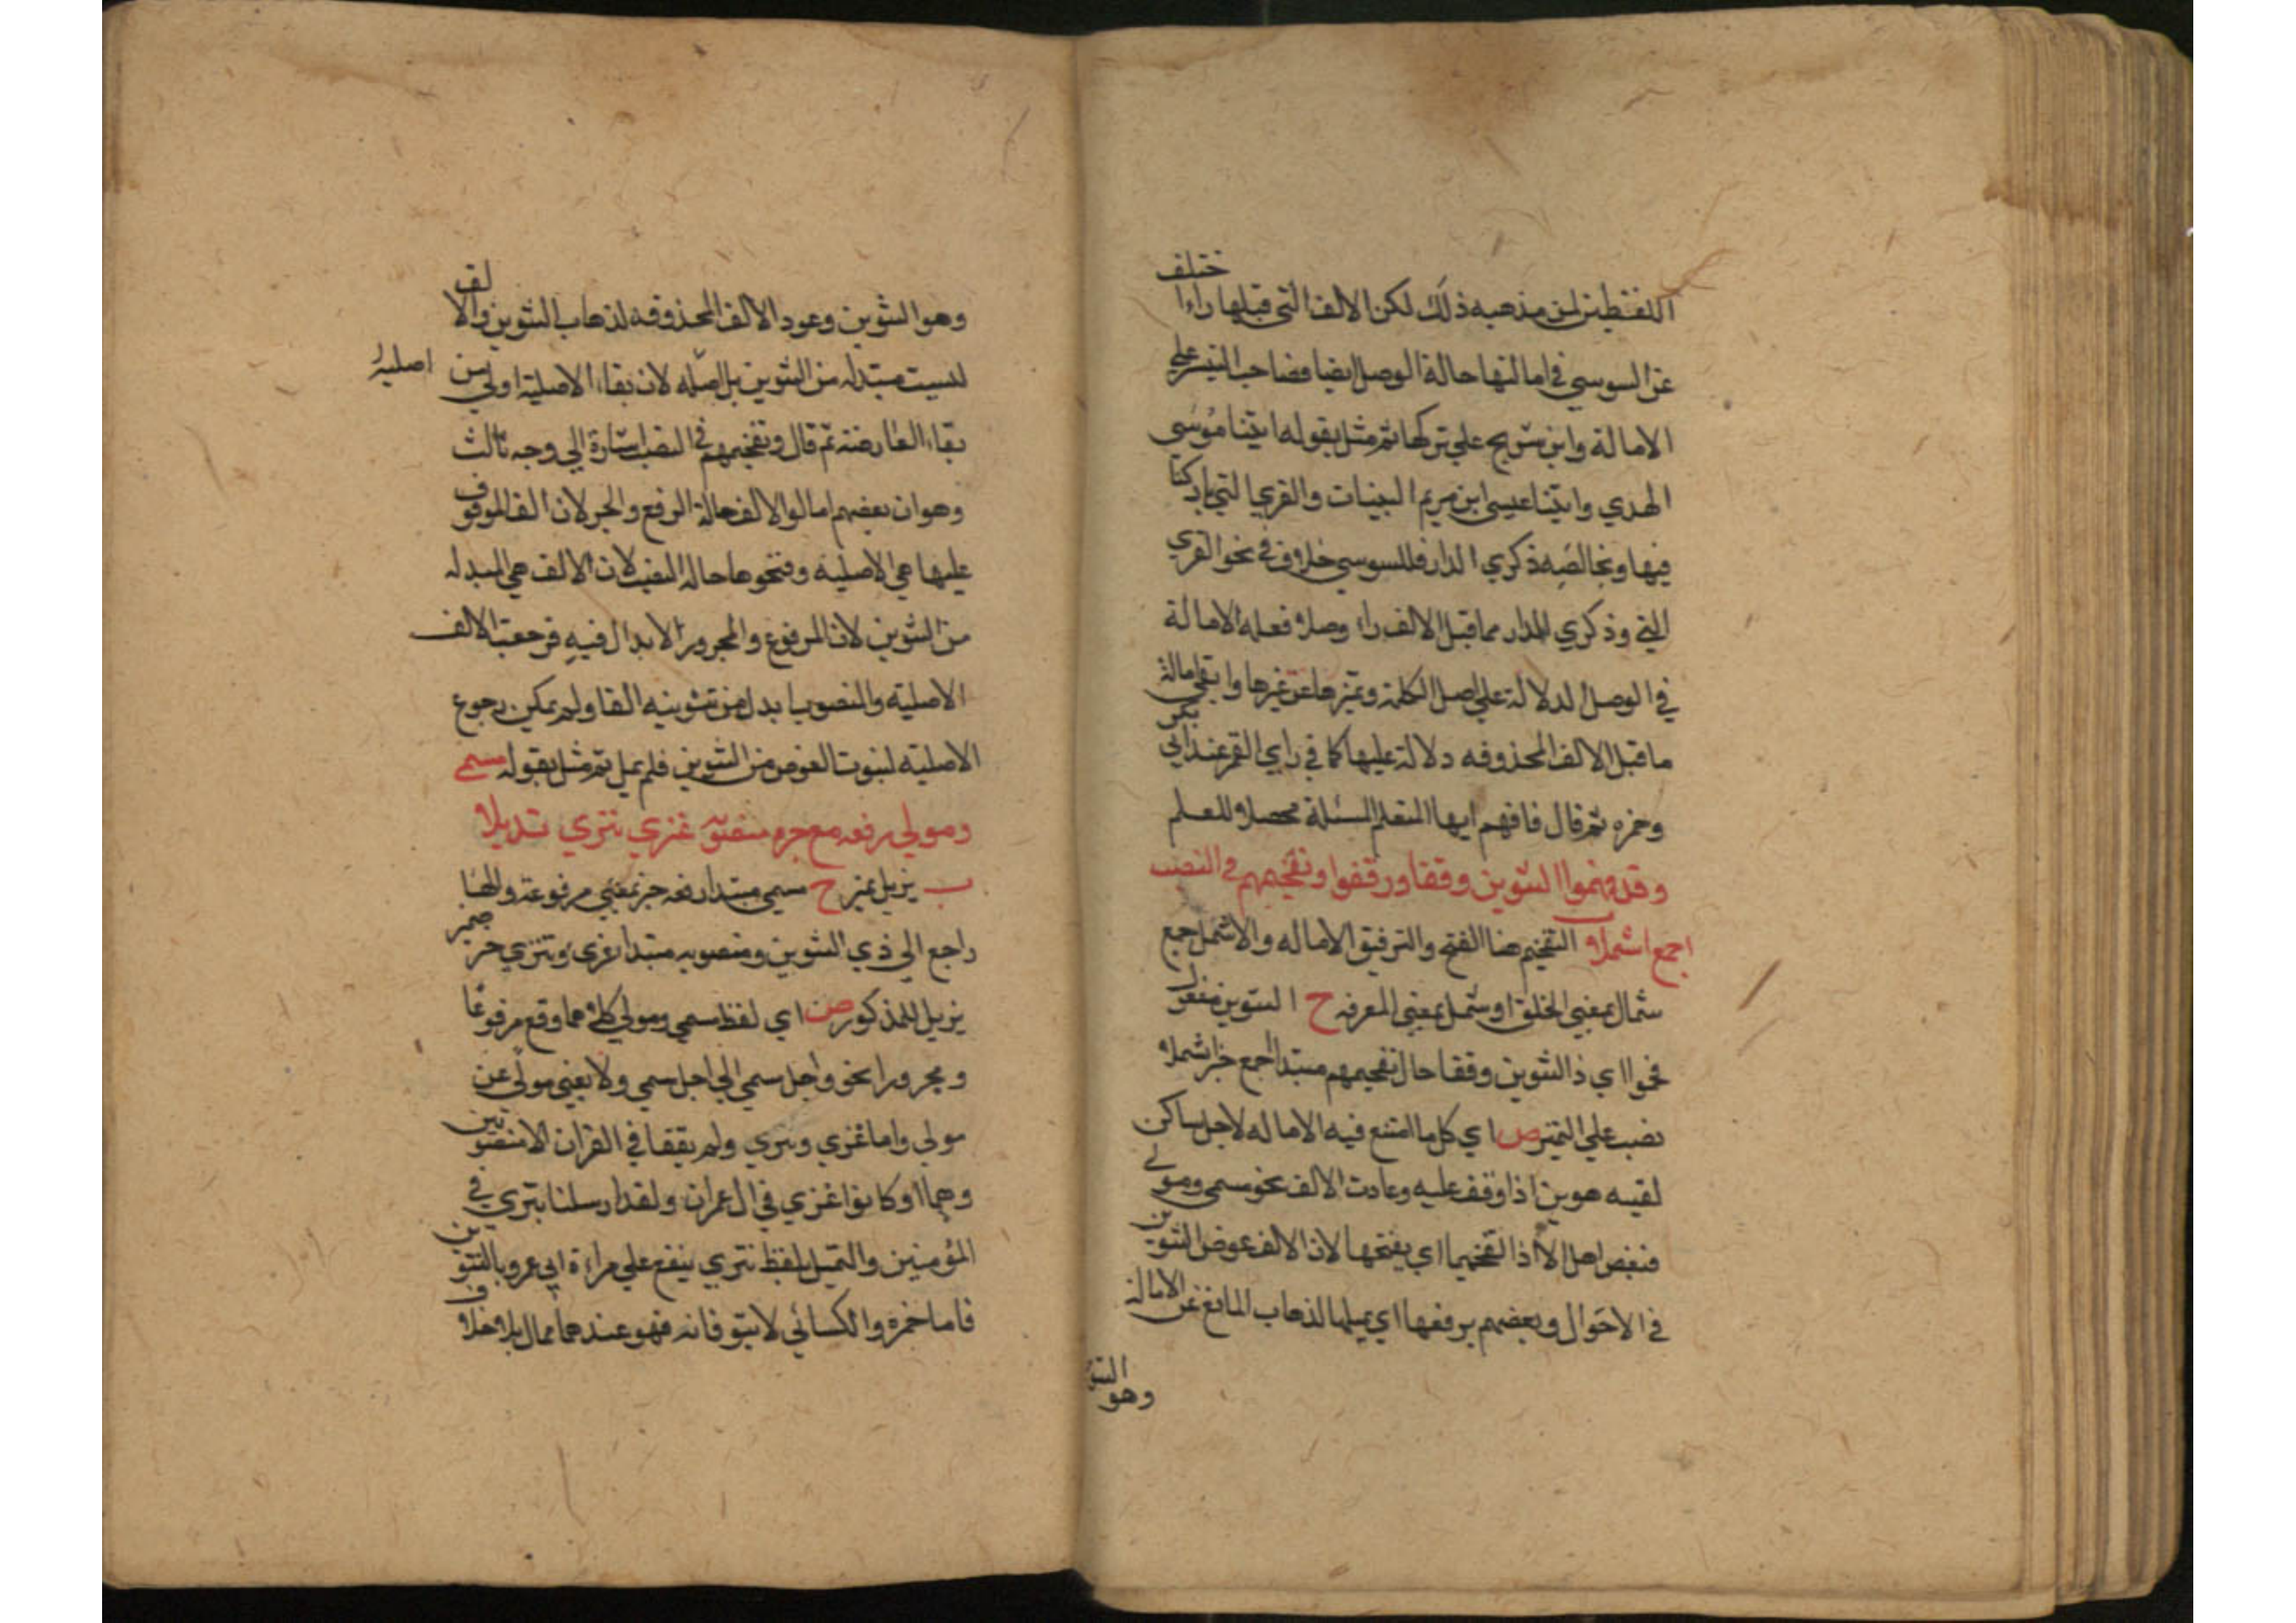 اللفظين لمن مذهبه ذلك لكن الالف التي قبلها راء اختلف
عن السوسي في امالتها حالة الوصل ايضا فصاحب التيسير علي
الامالة وابن شريح علي تركها ثم مثل بقوله اتينا موسي
الهدي واتينا عيسي ابن مريم البينات والقري التي باركنا
فيها وبخالصه ذكري الدار فللسوسي خلاف في نحو القري
التي وذكري الدار مما قبل الالف راء وصلا فعله الامالة
في الوصل لدلالة علي اصل الكلمة وتميزها عن غيرها وابقي امالة
ما قبل الالف المحذوفه دلالة عليها كما في راي القمر عند ابي بكر
وحمزه ثم قال فافهم ايها المتعلم المسئلة محصلا للعلم
وقد فخموا التنوين وقفا ورققوا وتفخيمهم في النصب
اجمع اشملا التفخيم هنا الفتح والترقيق الاماله والاشمل جمع
شمال بمعني الخلق او شمل بمعني المعرفه ح التنوين مفعول
فخموا اي ذا التنوين وقفا حال تفخيمهم مبتدا اجمع خبر اشملا
نصب علي التميز ص اي كل ما امتنع فيه الاماله لاجل ساكن
لقيه هو تنوين اذا وقف عليه وعادت الالف نحو مسمي ومولي
فبعض اهل الاذا التفخيما اي يفتحها لان الالف عوض التنوين
في الاحوال وبعضهم يرققها اي يميلها لذهاب المانع عن الامالة
وهو التنو
وهو التنوين وعود الالف المحذوفه لذهاب التنوين والالف
ليست مبتدله من التنوين بل اصله لان بقاء الاصلية اولي من
اصلية
بقاء العارضة ثم قال وتفخيمهم في النصب اشارة الي وجه ثالث
وهو ان بعضهم امالوا الالف حالة الرفع والجر لان الف الموقوف
عليها هي الاصلية وفتحوها حاله النصب لان الالف هي المبدله
من التنوين لان المرفوع والمجرور الا ابدال فيه فرجعت الالف
الاصلية والنصوب ابدل من تنوينه الفا ولم يمكن رجوع
الاصلية لثبوت العوض من التنوين فلم يمل ثم مثل بقوله مسمي
ومولي رفعه مع جره منصوبه غزي تتري تديلا
ب يزيل تميز ح مسمي مبتدا رفعه خبر بمعني مرفوعه والها ضمير
راجع الي ذي التنوين ومنصوبه مبتدا غزي وتتري خبر
يزيل للمذكور ص اي لفظ مسمي ومولي كلاهما وقع مرفوعا
ومجرورا نحو واجل سمي الي اجل سمي ولا يغني مولي عن
مولي واما غزي وتتري ولم يقفا في القران الا منصوبين
وهما او كانوا غزي في ال عمران ولقد ارسلنا تتري في
المؤمنين والتميل بلفظ تتري ينفع علي قراءة ابي عمرو بالتنوين
فاما حمزه والكسائي لا ينوفانه فهو عندهما ممال بلا خلاف